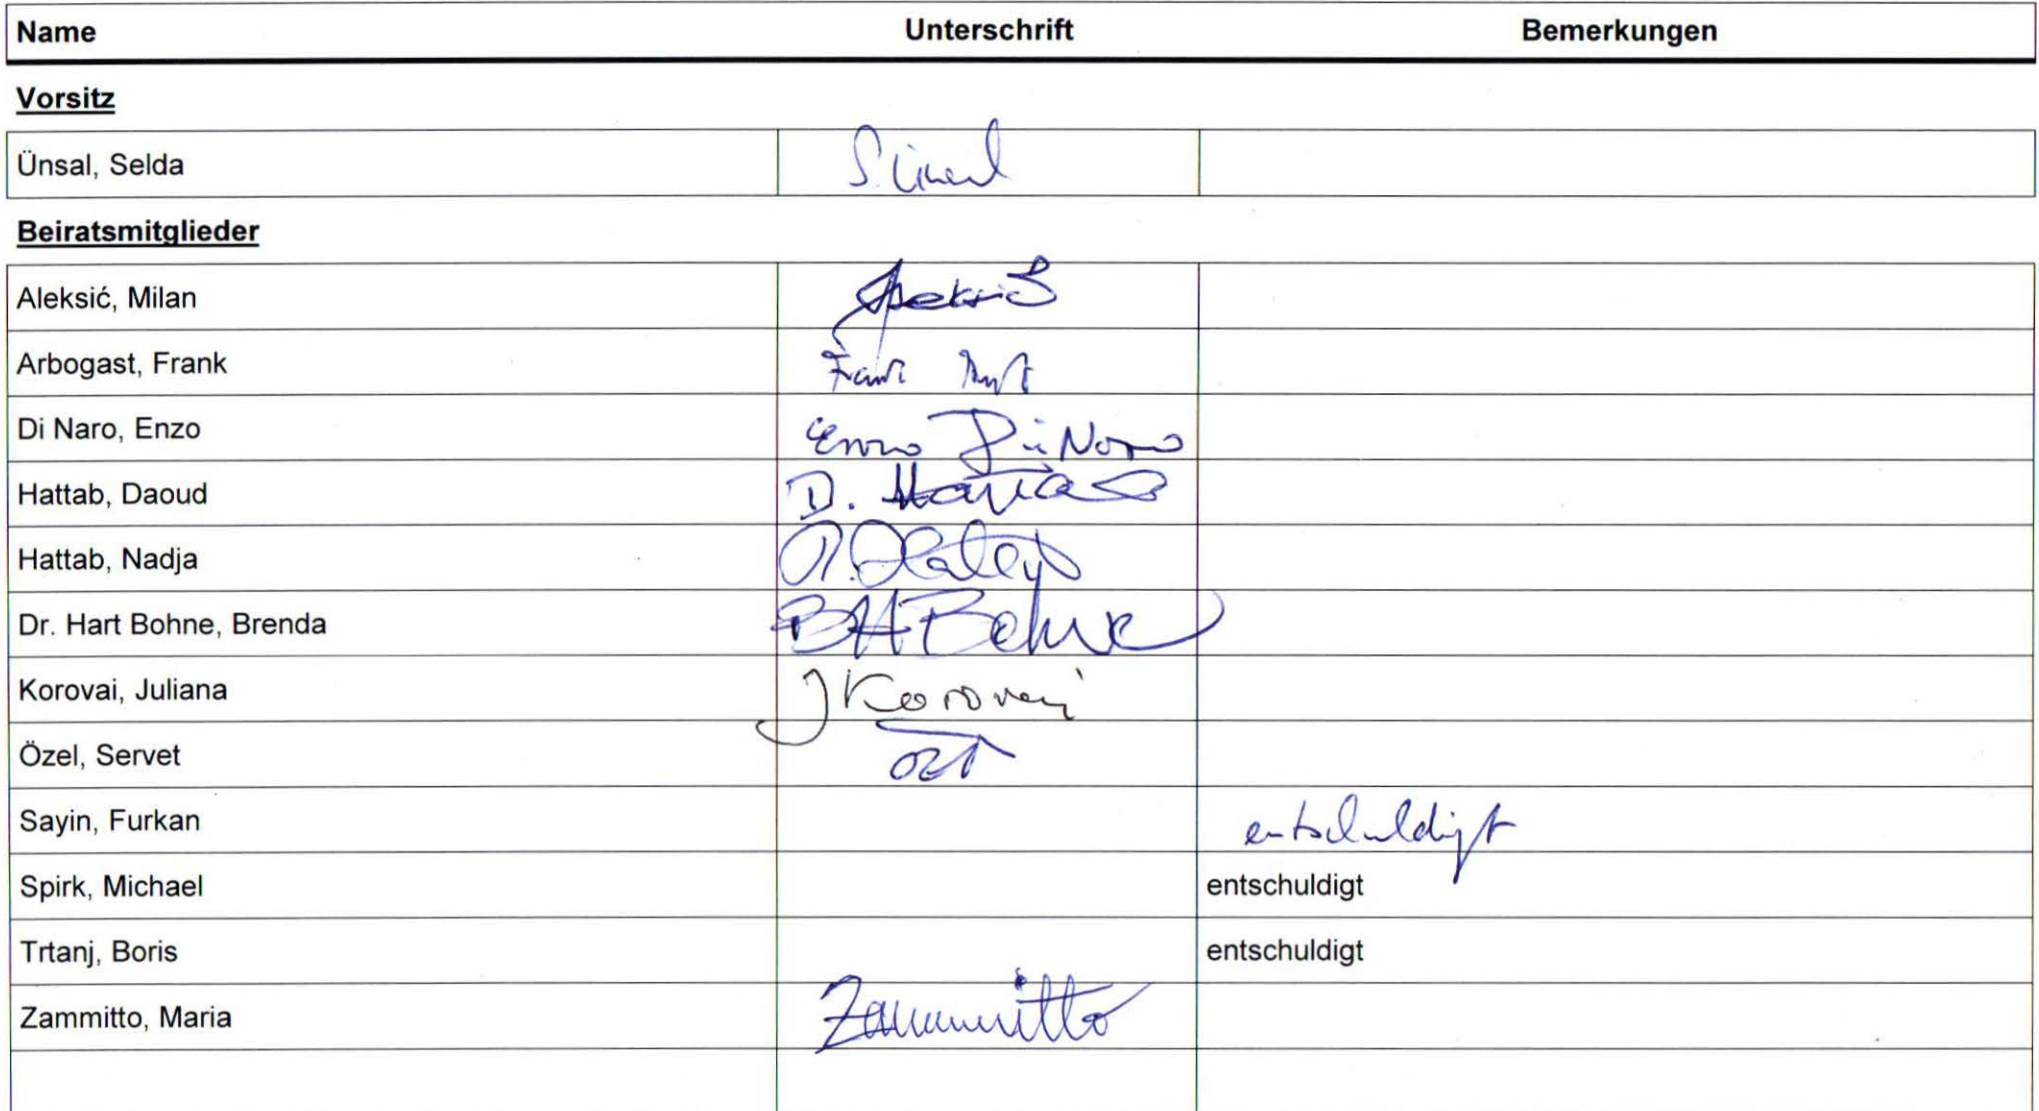 Name Unterschrift Bemerkungen
Vorsitz
Ünsal, Selda S. Ünsal
Beiratsmitglieder
Aleksić, Milan Aleksić
Arbogast, Frank Frank
Di Naro, Enzo Enzo Di Naro
Hattab, Daoud D. Hattab
Hattab, Nadja
Dr. Hart Bohne, Brenda BHBohne
Korovai, Juliana J Korovai
Özel, Servet
Sayin, Furkan entschuldigt
Spirk, Michael entschuldigt
Trtanj, Boris entschuldigt
Zammitto, Maria Zammitto